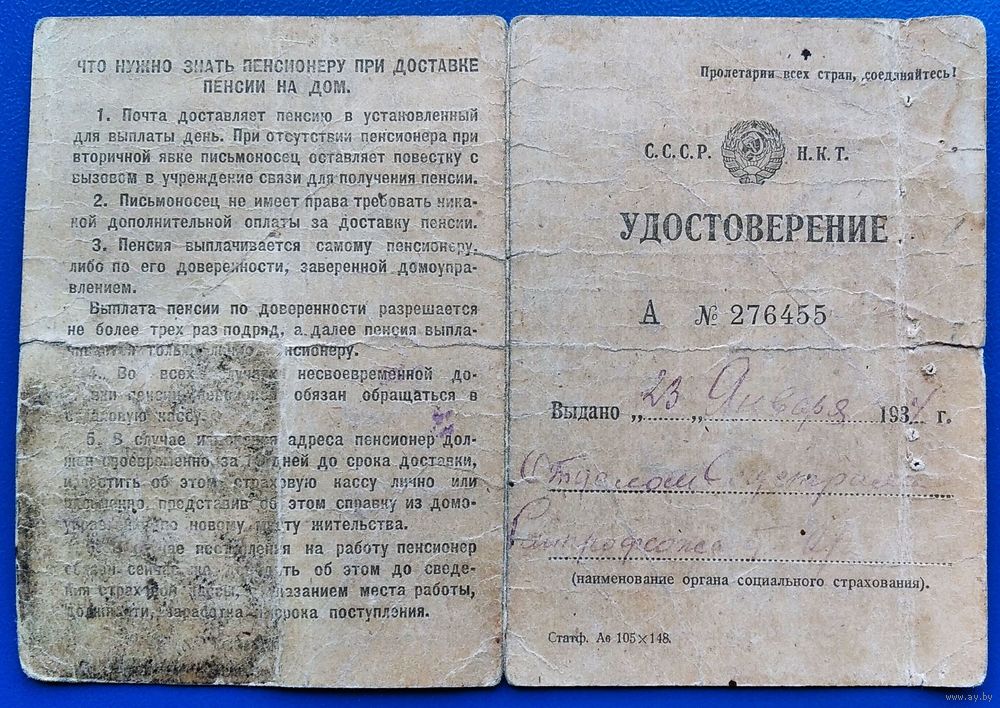 ЧТО НУЖНО ЗНАТЬ ПЕНСИОНЕРУ ПРИ ДОСТАВКЕ
ПЕНСИИ НА ДОМ.
1. Почта доставляет пенсию в установленный
для выплаты день. При отсутствии пенсионера при
вторичной явке письмоносец оставляет повестку с
вызовом в учреждение связи для получения пенсии.
2. Письмоносец не имеет права требовать ника-
кой дополнительной оплаты за доставку пенсии.
3. Пенсия выплачивается самому пенсионеру,
либо по его доверенности, заверенной домоупра-
влением.
Выплата пенсии по доверенности разрешается
не более трех раз подряд, а далее пенсия выпла-
чивается только пенсионеру.
4. Во всех случаях несвоевременной до-
пенсии обязан обращаться в
кассу.
5. В случае адреса пенсионер дол-
жен своевременно, за дней до срока доставки,
известить об этом страховую кассу лично или
представив об этом справку из домо-
по новому месту жительства.
6. В случае поступления на работу пенсионер
обязан сейчас же об этом до сведе-
ния страховой кассы, с указанием места работы,
должности, заработка и срока поступления.
Пролетарии всех стран, соединяйтесь!
С.С.С.Р. Н.К.Т.
УДОСТОВЕРЕНИЕ
А № 276455
Выдано „23„ Января 1934 г.
Отделом
(наименование органа социального страхования).
Статф. А6 105×148.
www.ay.by